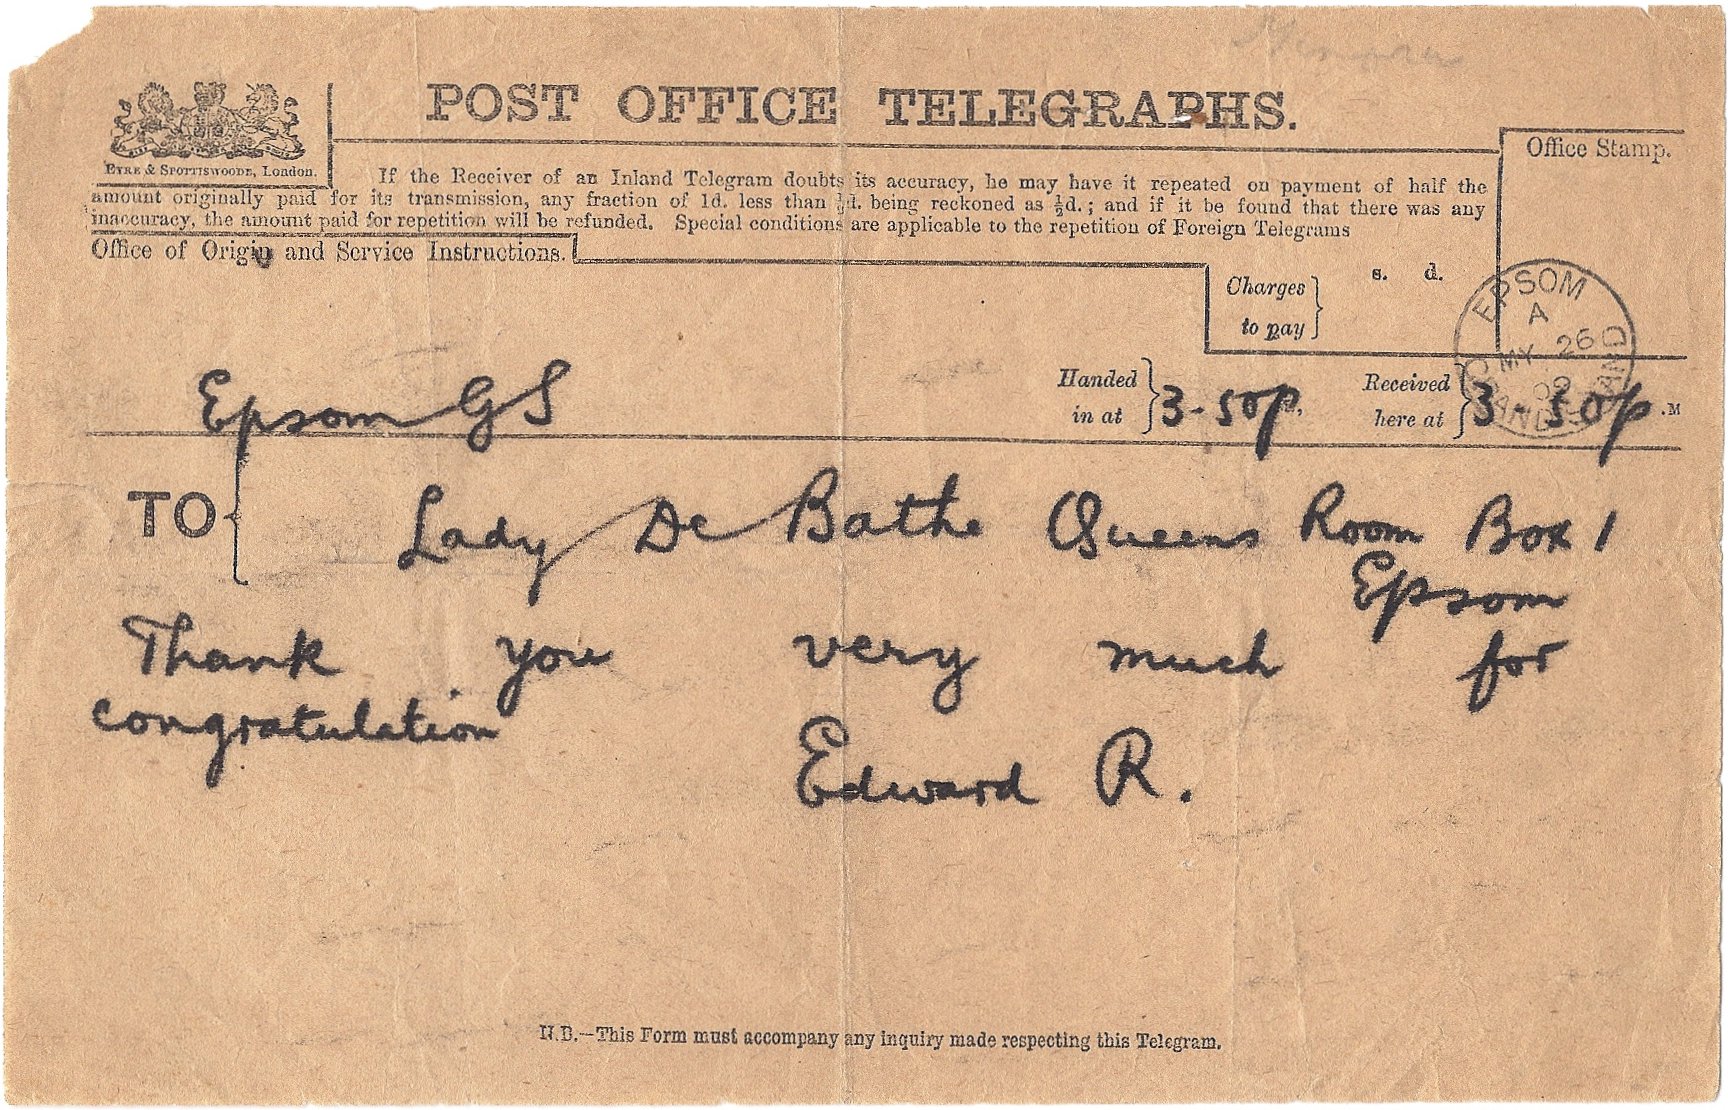 POST OFFICE TELEGRAPHS.
EYRE & SPOTTISWOODE, London.
Office Stamp.
If the Receiver of an Inland Telegram doubts its accuracy, he may have it repeated on payment of half the
amount originally paid for its transmission, any fraction of 1d. less than ½d. being reckoned as ½d.; and if it be found that there was any
inaccuracy, the amount paid for repetition will be refunded. Special conditions are applicable to the repetition of Foreign Telegrams
Office of Origin and Service Instructions.
Charges to pay
s. d.
EPSOM
A
MY 26
09
GRAND STAND
Epsom GS
Handed in at 3-50p.
Received here at 3-50p .M
TO Lady De Bathe Queens Room Box 1
Epsom
Thank you very much for
congratulation
Edward R.
N.B.—This Form must accompany any inquiry made respecting this Telegram.